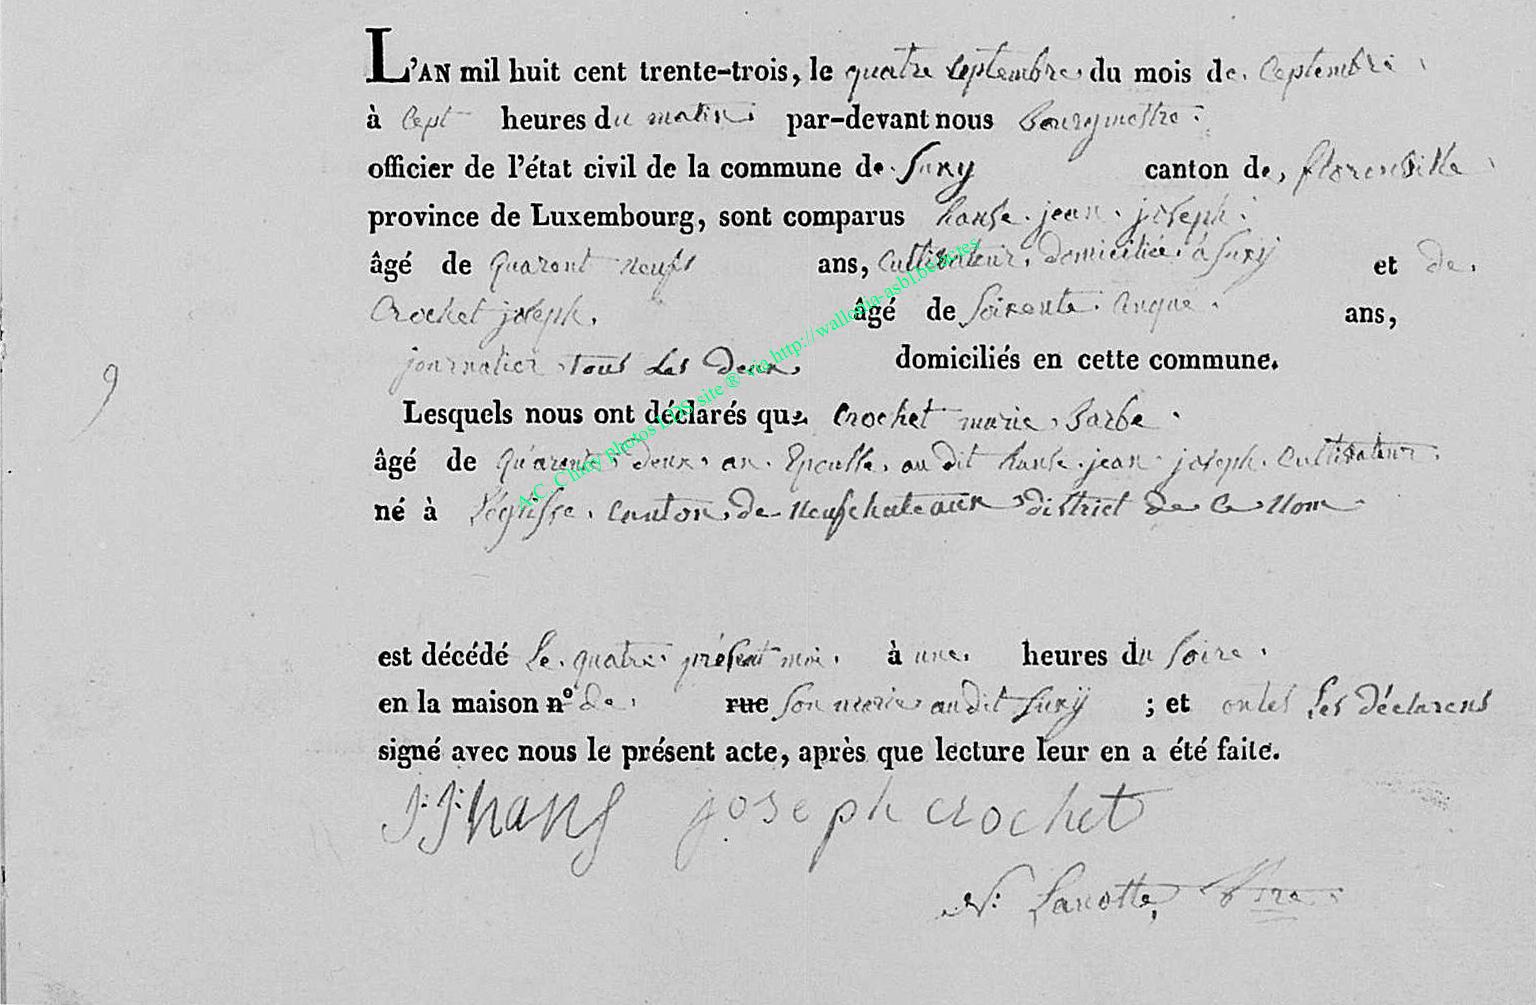 L'AN mil huit cent trente-trois, le quatre septembre du mois de Ceptembre
à Cept heures du matin par-devant nous Bourgmestre
officier de l'état civil de la commune de Suxy canton de florenville
province de Luxembourg, sont comparus hanse jean joseph
âgé de quarent neufs ans, cultivateur domiciliée à Suxy et de
Crochet joseph âgé de Soixente Cinque ans,
journalier tous les deux domiciliés en cette commune.
Lesquels nous ont déclarés que Crochet marie Barbe
âgé de quarente deux an Epousse au dit hanse jean joseph Cultivateur
né à Léglisse Canton de neufchateaux district de Ce Nom
9
est décédé Le quatre présent moi à une heures du Soire
en la maison nº de rue Son merie au dit Suxy ; et ontes Les déclarens
signé avec nous le présent acte, après que lecture leur en a été faite.
J: J: hans joseph crochet
N: Lanotte Btre
A.C. Chiny photos LDS site ® via http://wallonia-asbl.be/actes